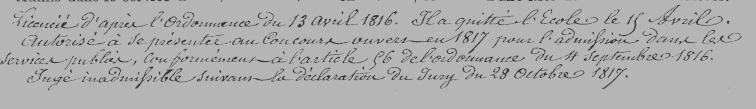 Licencié d'après l'ordonnance du 13 avril 1816. Il a quitté l'Ecole le 15 Avril.
Autorisé à se présenter au Concours ouvert en 1817 pour l'admission dans les
services publics, conformément à l'article 56 de l'ordonnance du 4 Septembre 1816.
Jugé inadmissible suivant la déclaration du Jury du 28 Octobre 1817.